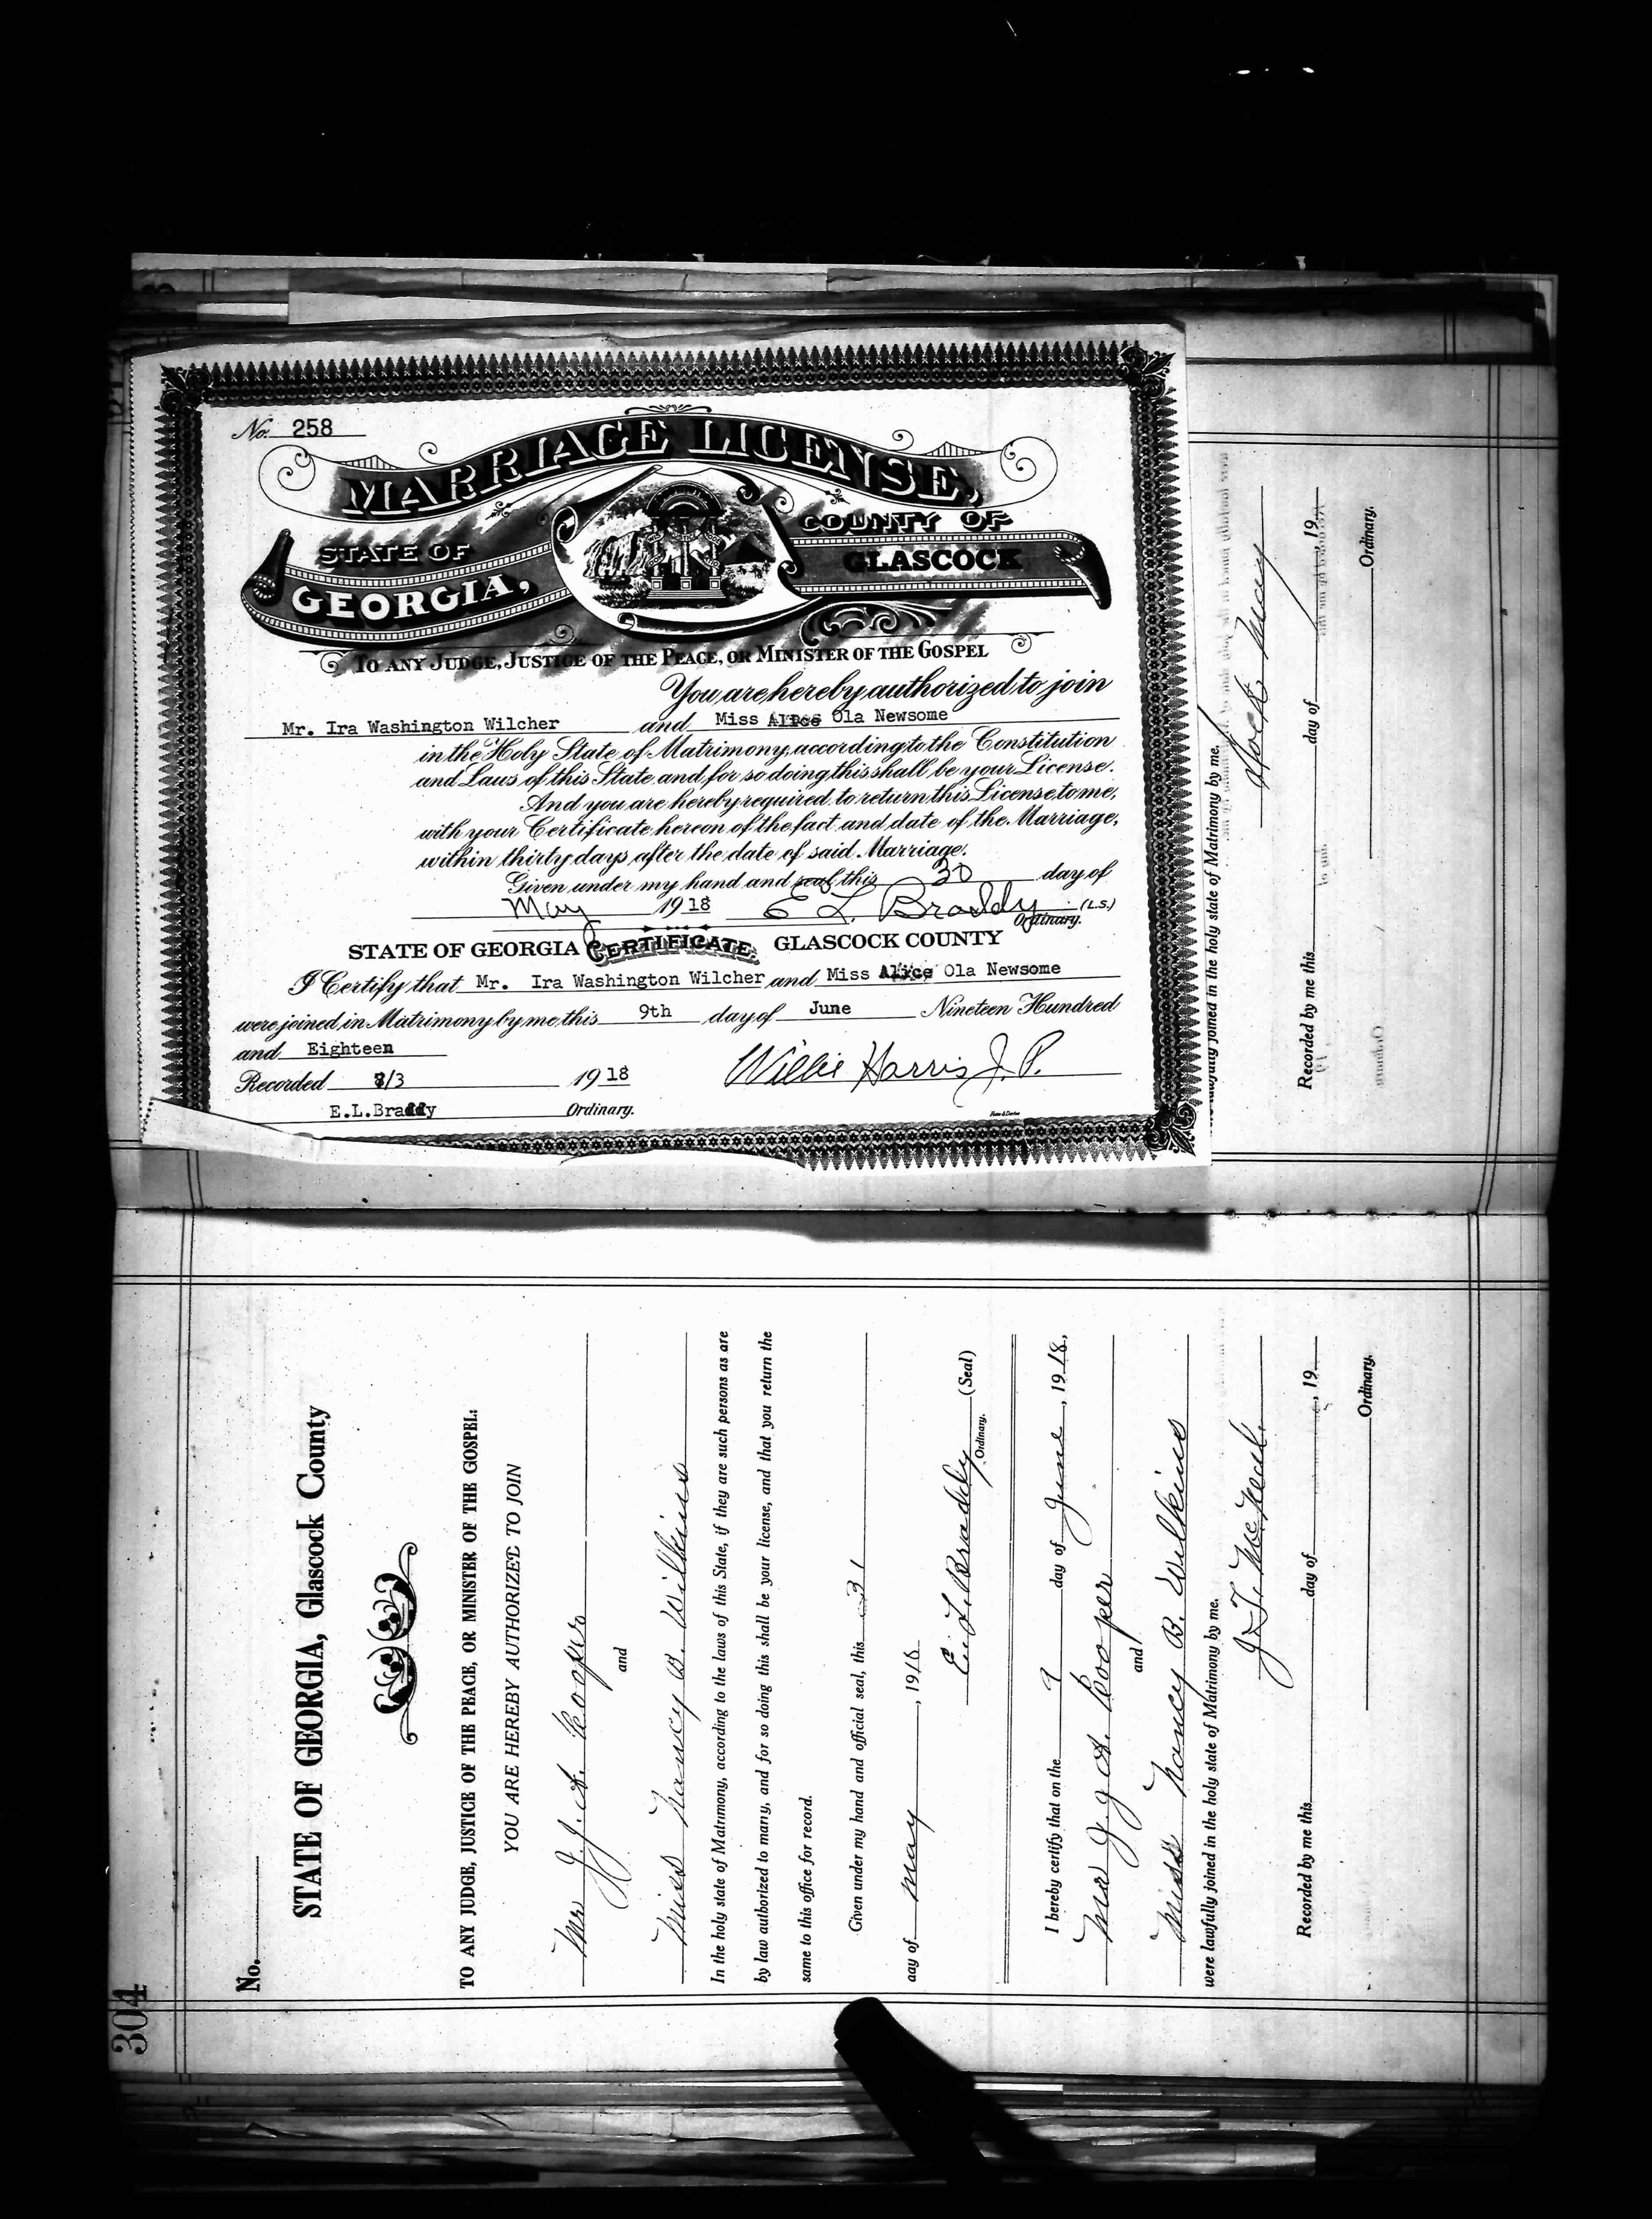 No. 258
MARRIAGE LICENSE,
STATE OF GEORGIA,
COUNTY OF GLASCOCK
TO ANY JUDGE, JUSTICE OF THE PEACE, OR MINISTER OF THE GOSPEL
You are hereby authorized to join
Mr. Ira Washington Wilcher and Miss Alice Ola Newsome
in the Holy State of Matrimony, according to the Constitution
and Laws of this State and for so doing this shall be your License.
And you are hereby required to return this License to me,
with your Certificate hereon of the fact and date of the Marriage,
within thirty days after the date of said Marriage.
Given under my hand and seal this 30 day of
May 1918 E L. Braddy (L.S.)
Ordinary.
STATE OF GEORGIA CERTIFICATE. GLASCOCK COUNTY
I Certify that Mr. Ira Washington Wilcher and Miss Alice Ola Newsome
were joined in Matrimony by me this 9th day of June Nineteen Hundred
and Eighteen
Recorded 8/3 1918 Willie Harris J. P.
E.L.Braddy Ordinary.
lawfully joined in the holy state of Matrimony by me.
Recorded by me this day of , 19
Ordinary.
304
No.
STATE OF GEORGIA, Glascock County
TO ANY JUDGE, JUSTICE OF THE PEACE, OR MINISTER OF THE GOSPEL:
YOU ARE HEREBY AUTHORIZED TO JOIN
Mr J. A. Kooper
and
Miss Nancy B. Wilkins
In the holy state of Matrimony, according to the laws of this State, if they are such persons as are
by law authorized to marry, and for so doing this shall be your license, and that you return the
same to this office for record.
Given under my hand and official seal, this 31
day of May , 1918
E. L. Braddy (Seal)
Ordinary.
I hereby certify that on the 9 day of June , 1918,
Mr J. A. Kooper
and
Miss Nancy B. Wilkins
were lawfully joined in the holy state of Matrimony by me.
J. T. McNeal.
Recorded by me this day of , 19
Ordinary.